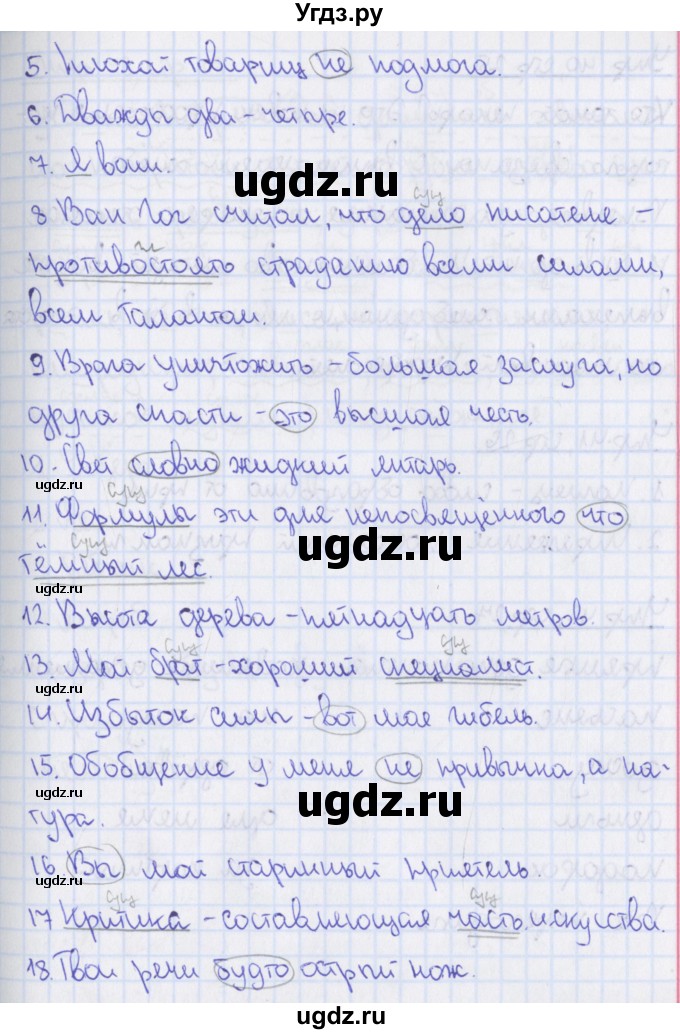 Угдз.ру
5. Плохой товарищ не подмога.
6. Дважды два – четыре.
7. Я ваш.
ugdz.ru
сущ
8 Ван Гог считал, что дело писателя –
гл
противостоять страданию всеми силами,
ugdz.ru
всем талантом.
ugdz.ru
9. Врага уничтожить – большая заслуга, но
друга спасти – это высшая честь.
ugdz.ru
10. Свет словно жидкий янтарь.
ugdz.ru
сущ
11. Формулы эти для непосвещённого что
ugdz.ru
сущ
тёмный лес.
ugdz.ru
12. Высота дерева – пятнадцать метров.
сущ сущ
13. Мой брат – хороший специалист.
ugdz.ru
14. Избыток силы – вот моя гибель.
15. Обобщение у меня не привычка, а на-
ugdz.ru
тура.
16 Вы мой старинный приятель.
ugdz.ru
сущ сущ
17 Критика – составляющая часть искусства.
18. Твои речи будто острый нож.
ugdz.ru
ugdz.ru